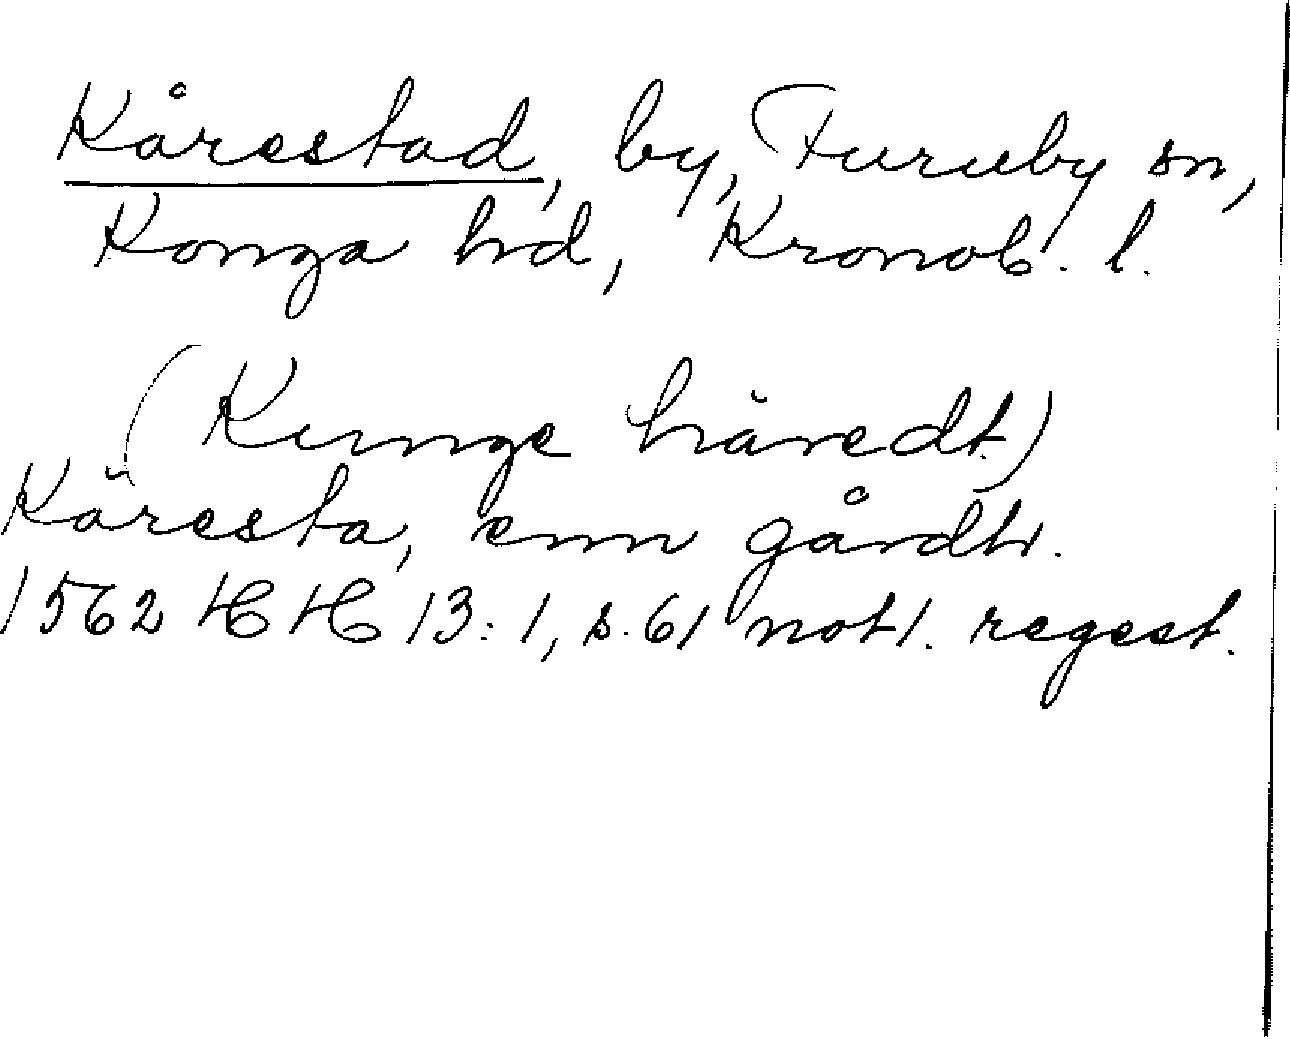 Kårestad, by, Furuby sn,
Konga hd, Kronob. l.
(Kunge häredt)
Käresta, enn gårdh.
1562 HH 13:1, s. 61 not1. regest.